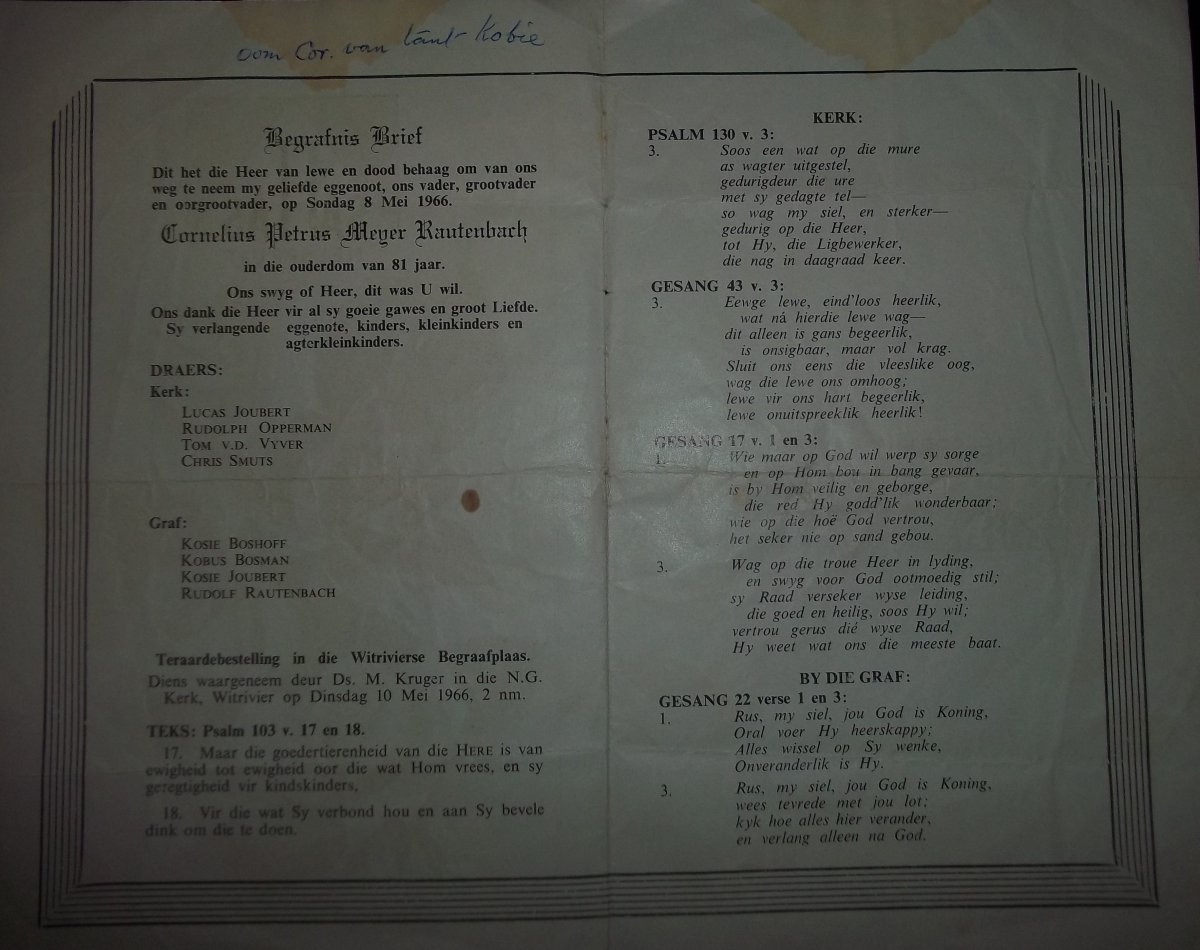 oom Cor. van tânt Kobie
Begrafnis Brief
Dit het die Heer van lewe en dood behaag om van ons
weg te neem my geliefde eggenoot, ons vader, grootvader
en oorgrootvader, op Sondag 8 Mei 1966.
Cornelius Petrus Meyer Rautenbach
in die ouderdom van 81 jaar.
Ons swyg of Heer, dit was U wil.
Ons dank die Heer vir al sy goeie gawes en groot Liefde.
Sy verlangende eggenote, kinders, kleinkinders en
agterkleinkinders.
DRAERS:
Kerk:
LUCAS JOUBERT
RUDOLPH OPPERMAN
TOM V.D. VYVER
CHRIS SMUTS
Graf:
KOSIE BOSHOFF
KOBUS BOSMAN
KOSIE JOUBERT
RUDOLF RAUTENBACH
Teraardebestelling in die Witrivierse Begraafplaas.
Diens waargeneem deur Ds. M. Kruger in die N.G.
Kerk, Witrivier op Dinsdag 10 Mei 1966, 2 nm.
TEKS: Psalm 103 v. 17 en 18.
17. Maar die goedertierenheid van die HERE is van
ewigheid tot ewigheid oor die wat Hom vrees, en sy
geregtigheid vir kindskinders,
18. Vir die wat Sy verbond hou en aan Sy bevele
dink om die te doen.
KERK:
PSALM 130 v. 3:
3. Soos een wat op die mure
as wagter uitgestel,
gedurigdeur die ure
met sy gedagte tel—
so wag my siel, en sterker—
gedurig op die Heer,
tot Hy, die Ligbewerker,
die nag in daagraad keer.
GESANG 43 v. 3:
3. Eewge lewe, eind'loos heerlik,
wat ná hierdie lewe wag—
dit alleen is gans begeerlik,
is onsigbaar, maar vol krag.
Sluit ons eens die vleeslike oog,
wag die lewe ons omhoog;
lewe vir ons hart begeerlik,
lewe onuitspreeklik heerlik!
GESANG 17 v. 1 en 3:
1. Wie maar op God wil werp sy sorge
en op Hom bou in bang gevaar,
is by Hom veilig en geborge,
die red Hy godd'lik wonderbaar;
wie op die hoë God vertrou,
het seker nie op sand gebou.
3. Wag op die troue Heer in lyding,
en swyg voor God ootmoedig stil;
sy Raad verseker wyse leiding,
die goed en heilig, soos Hy wil;
vertrou gerus dié wyse Raad,
Hy weet wat ons die meeste baat.
BY DIE GRAF:
GESANG 22 verse 1 en 3:
1. Rus, my siel, jou God is Koning,
Oral voer Hy heerskappy;
Alles wissel op Sy wenke,
Onveranderlik is Hy.
3. Rus, my siel, jou God is Koning,
wees tevrede met jou lot;
kyk hoe alles hier verander,
en verlang alleen na God.